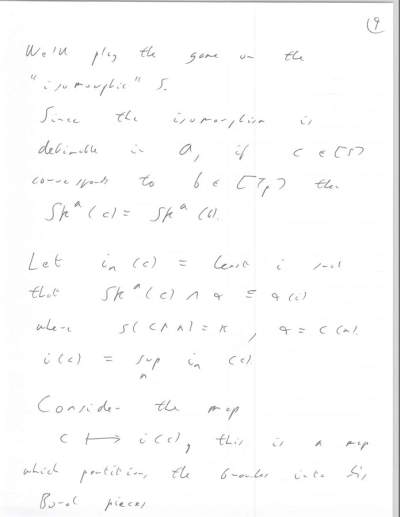 9
We'll play the game on the
"isomorphic" S.
Since the isomorphism is
definable in a, if c ∈ [S]
corresponds to b ∈ [T] then
Sk^a(c) = Sk^a(b).
Let i_n(c) = least i such
that Sk^a(c) ∩ α
where S(c↾n) = κ, α = c(n).
i(c) = sup i_n(c)
n
Consider the map
c ↦ i(c), this is a map
which partitions the branches into
Borel pieces